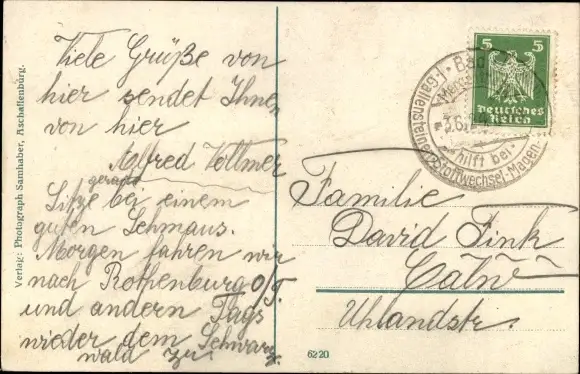 Viele Grüße von
hier sendet Ihnen
von hier
Alfred Vollmer
gerade
Sitze bei einem
guten Schmaus.
Morgen fahren wir
nach Rothenburg o/T.
und andern Tags
wieder dem Schwarz
wald zu
Verlag: Photograph Samhaber, Aschaffenburg.
5 5
Deutsches
Reich
Bad
hilft bei
Gallenstein Stoffwechsel-Magen-
Familie
David Fink
Calw
Uhlandstr.
6220